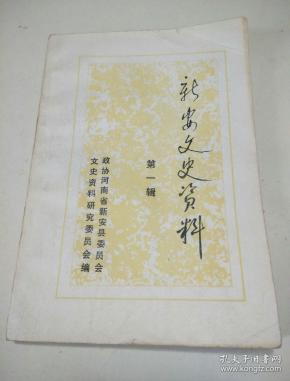 新安文史资料
第一辑
政协河南省新安县委员会
文史资料研究委员会编
孔夫子旧书网
book.kongfz.com